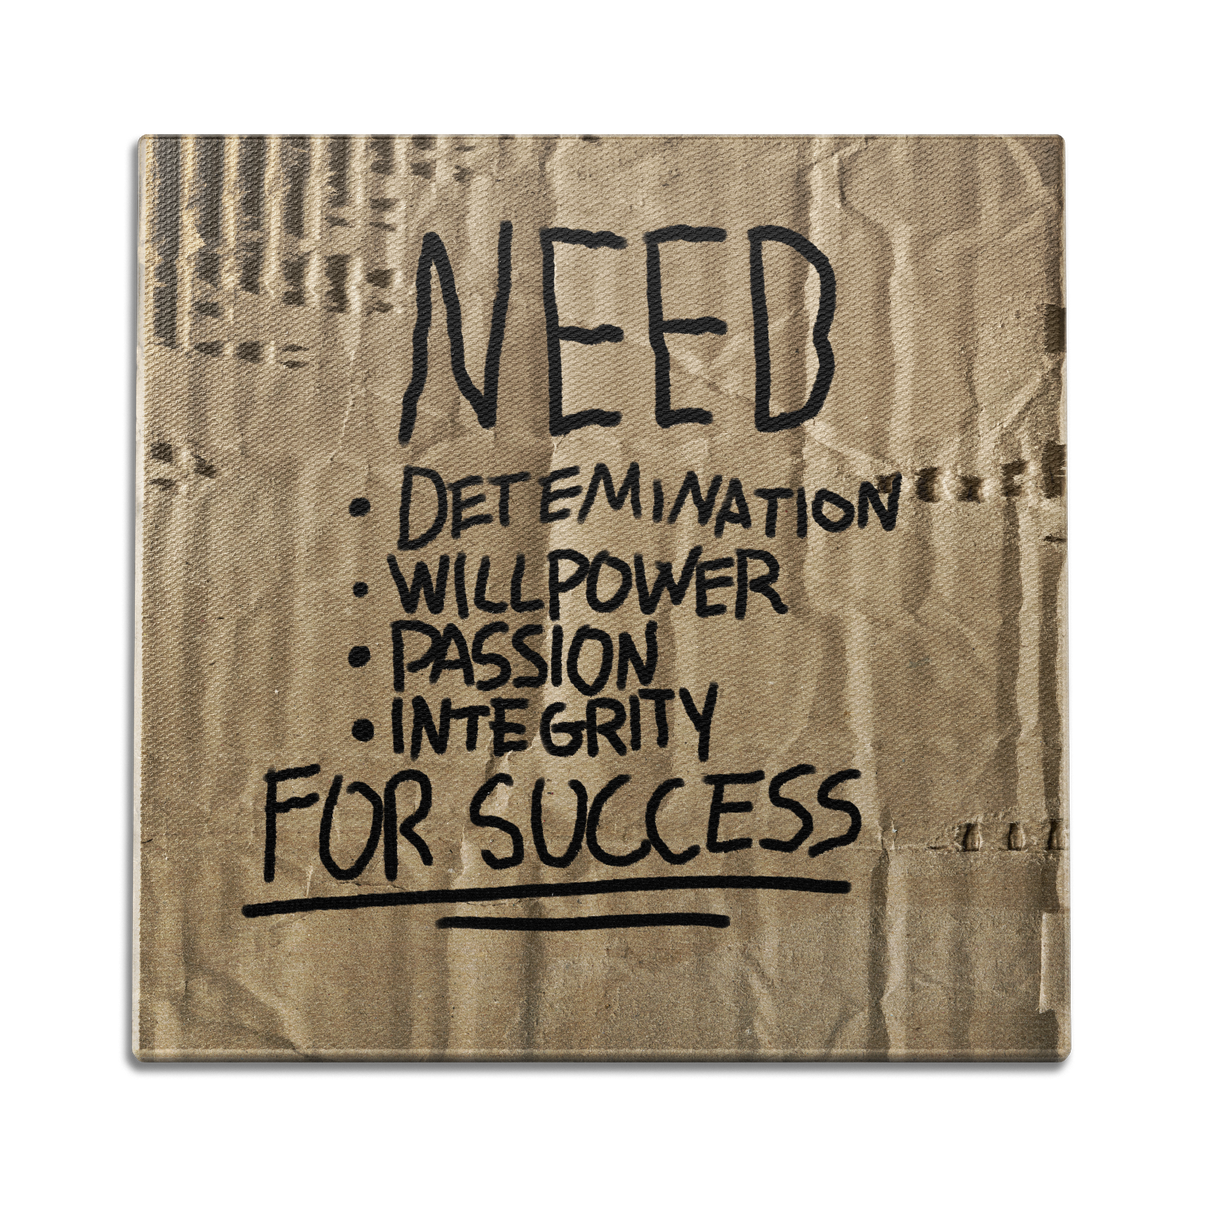 NEED
• DETEMINATION
• WILLPOWER
• PASSION
• INTEGRITY
FOR SUCCESS